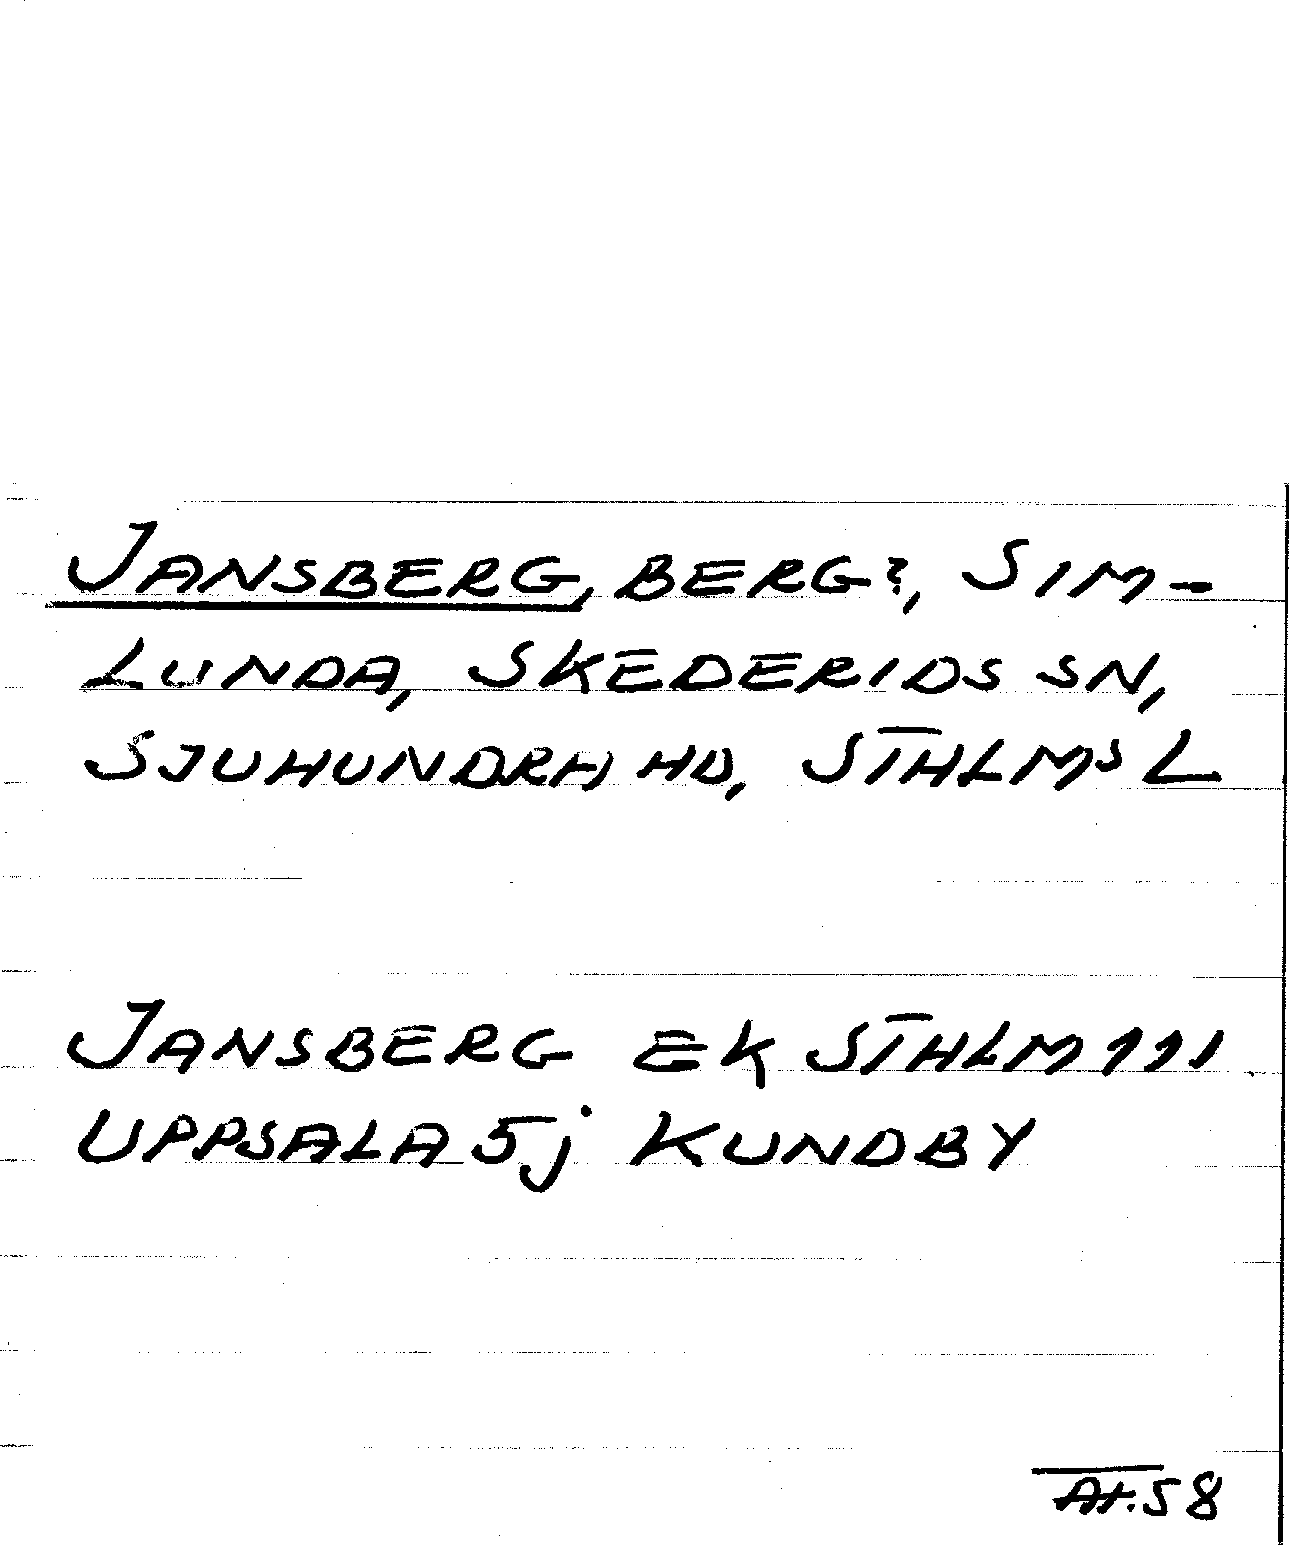 JANSBERG, BERG?, SIM-
LUNDA, SKEDERIDS SN,
SJUHUNDRA HD, STHLMS L
JANSBERG EK STHLM 111
UPPSALA 5j KUNDBY
58